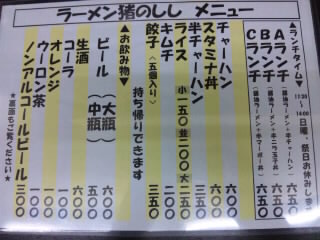 ラーメン猪のしし メニュー
▲ランチタイム▼ 11:00~14:00 日曜・祭日お休みします
Aランチ (醤油ラーメン+半チャーハン) 六五〇
Bランチ (醤油ラーメン+半ニラ玉子丼) 六五〇
Cランチ (醤油ラーメン+半マーボー丼) 六五〇
チャーハン 六〇〇
スタミナ丼 六〇〇
半チャーハン 三五〇
ライス 小一五〇 並二〇〇 大二五〇
キムチ 二〇〇
餃子(五個入り) 三五〇
持ち帰りできます
▲お飲み物▼
ビール (大瓶) 六〇〇
(中瓶) 五〇〇
生酒 六〇〇
コーラ 一〇〇
オレンジ 一〇〇
ウーロン茶 一〇〇
ノンアルコールビール 三〇〇
★裏面もご覧ください★